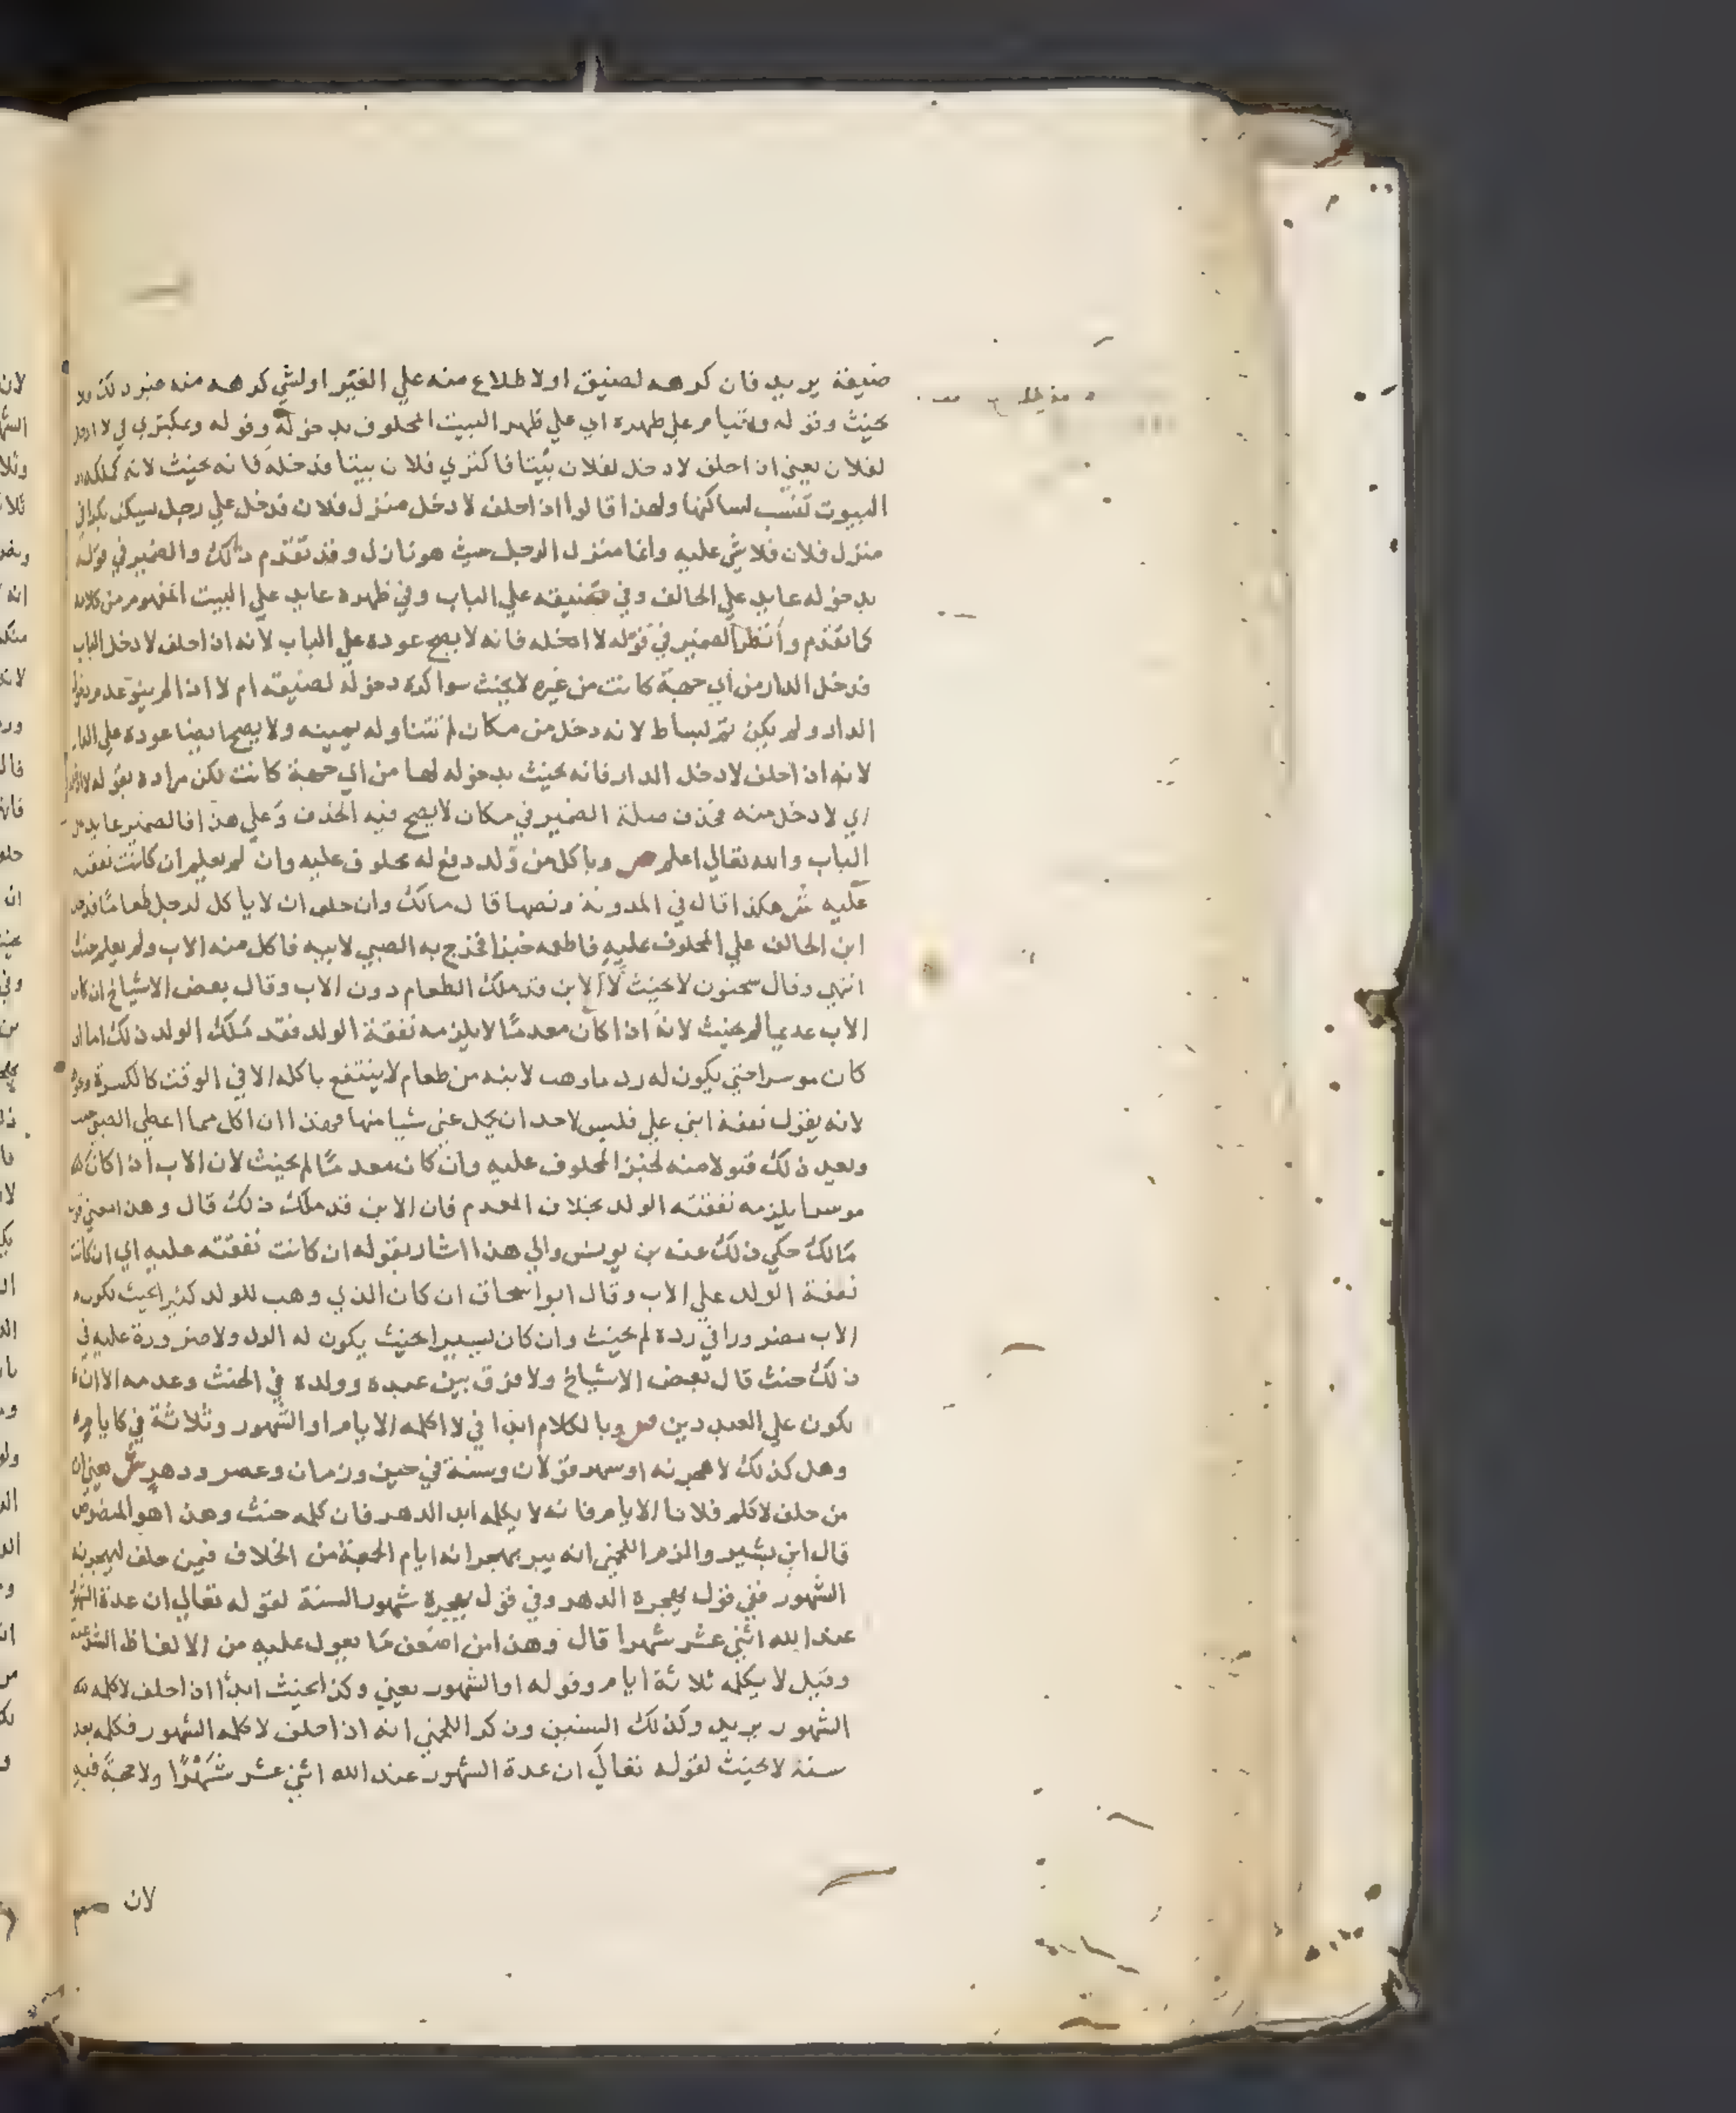 ضيقة يريد فان كرهه لضيق او لاطلاع منه علي الغير او لشي كرهه منه غير ذلك فلا
يحنث وقوله وقيام علي ظهره اي علي ظهر البيت المحلوف بدخوله وقوله وبمكتري في لا ادخل
لفلان يعني اذا حلف لادخل لفلان بيتا فاكتري فلان بيتا فدخله فانه يحنث لانه كملكه
البيوت تنسب لساكنها ولهذا قالوا اذا حلف لا دخل منزل فلان فدخل علي رجل يسكن بكراء في
منزل فلان فلا شي عليه وانما منزل الرجل حيث هو نازل وقد تقدم ذلك والضمير في قوله
بدخوله عايد علي الحالف وفي ضيقه علي الباب وفي ظهره عايد علي البيت المفهوم من كلامه
كما تقدم وانظر الضمير في قوله لا ادخله فانه لا يصح عوده علي الباب لانه اذا حلف لا دخل الباب
فدخل الدار من اي جهة كانت من غيره لا يحنث سوا كره دخوله لضيقه ام لا اذا لم ينو عدم دخول
الدار ولم يكن ثم بساط لانه دخل من مكان لم تتناوله يمينه ولا يصح ايضا عوده علي الدار
لانه اذا حلف لادخل الدار فانه يحنث بدخوله لها من اي جهة كانت لكن مراده بقوله لا ادخله
اي لا دخل منه فحذف صلة الضمير في مكان لا يصح فيه الحذف وعلي هذا فالضمير عايد علي
الباب والله تعالي اعلم ص وباكل من ولد دفع له محلوف عليه وان لم يعلم ان كانت نفقته
عليه ش هكذا قال في المدونة ونصها قال مالك وان حلف ان لا ياكل لرجل طعاما فدخل
ابن الحالف علي المحلوف عليه فاطعمه خبزا فخرج به الصبي لابيه فاكل منه الاب ولم يعلم حنث
انتهي وقال سحنون لا يحنث لان الابن قد ملك الطعام دون الاب وقال بعض الاشياخ ان كان
الاب عديما لم يحنث لانه اذا كان معدما لا يلزمه نفقة الولد فقد ملك الولد ذلك اما ان
كان موسرا حتي يكون له رد ما وهب لابنه من طعام لا ينتفع باكله الا في الوقت كالكسرة ونحوه
لانه يقول نفقة ابني علي فليس لاحد ان يحمل عني شيا منها فهذا ان اكل مما اعطي الصبي حنث
ويعد ذلك قبولا منه لخبز المحلوف عليه وان كان معدما لم يحنث لان الاب اذا كان
موسرا يلزمه نفقته الولد بخلاف المعدم فان الابن قد ملك ذلك قال وهذا معني قول
مالك حكي ذلك عنه بن يونس والي هذا اشار بقوله ان كانت نفقته عليه اي ان كانت
نفقة الولد علي الاب وقال ابو اسحاق ان كان الذي وهب للولد كثيرا بحيث يكون
الاب مضرورا في رده لم يحنث وان كان يسيرا بحيث يكون له الرد ولا ضرورة عليه في
ذلك حنث قال بعض الاشياخ ولا فرق بين عبده وولده في الحنث وعدمه الا ان
يكون علي العبد دين ص وبالكلام ابدا في لا اكلمه الايام او الشهور وثلاثة في كايام
وهل كذلك لاهجرنه او شهر قولان وسنة في حين وزمان وعصر ودهر ش يعني ان
من حلف لاكلم فلانا الايام فانه لا يكلمه ابد الدهر فان كلمه حنث وهذا هو المنصوص
قال ابن بشير والزم اللخمي انه يبر بهجرانه ايام الجمعة من الخلاف فيمن حلف ليهجرنه
الشهور ففي قول يهجره الدهر وفي قول يهجره شهور السنة لقوله تعالي ان عدة الشهور
عند الله اثني عشر شهرا قال وهذا من اضعف ما يعول عليه من الالفاظ الشرعية
وقيل لا يكلمه ثلاثة ايام وقوله او الشهور يعني وكذا يحنث ابدا اذا حلف لاكلمه
الشهور يريد وكذلك السنين وذكر اللخمي انه اذا حلف لا كلمه الشهور فكلمه بعد
سنة لا يحنث لقوله تعالي ان عدة الشهور عند الله اثني عشر شهرا ولا حجة فيه
لان